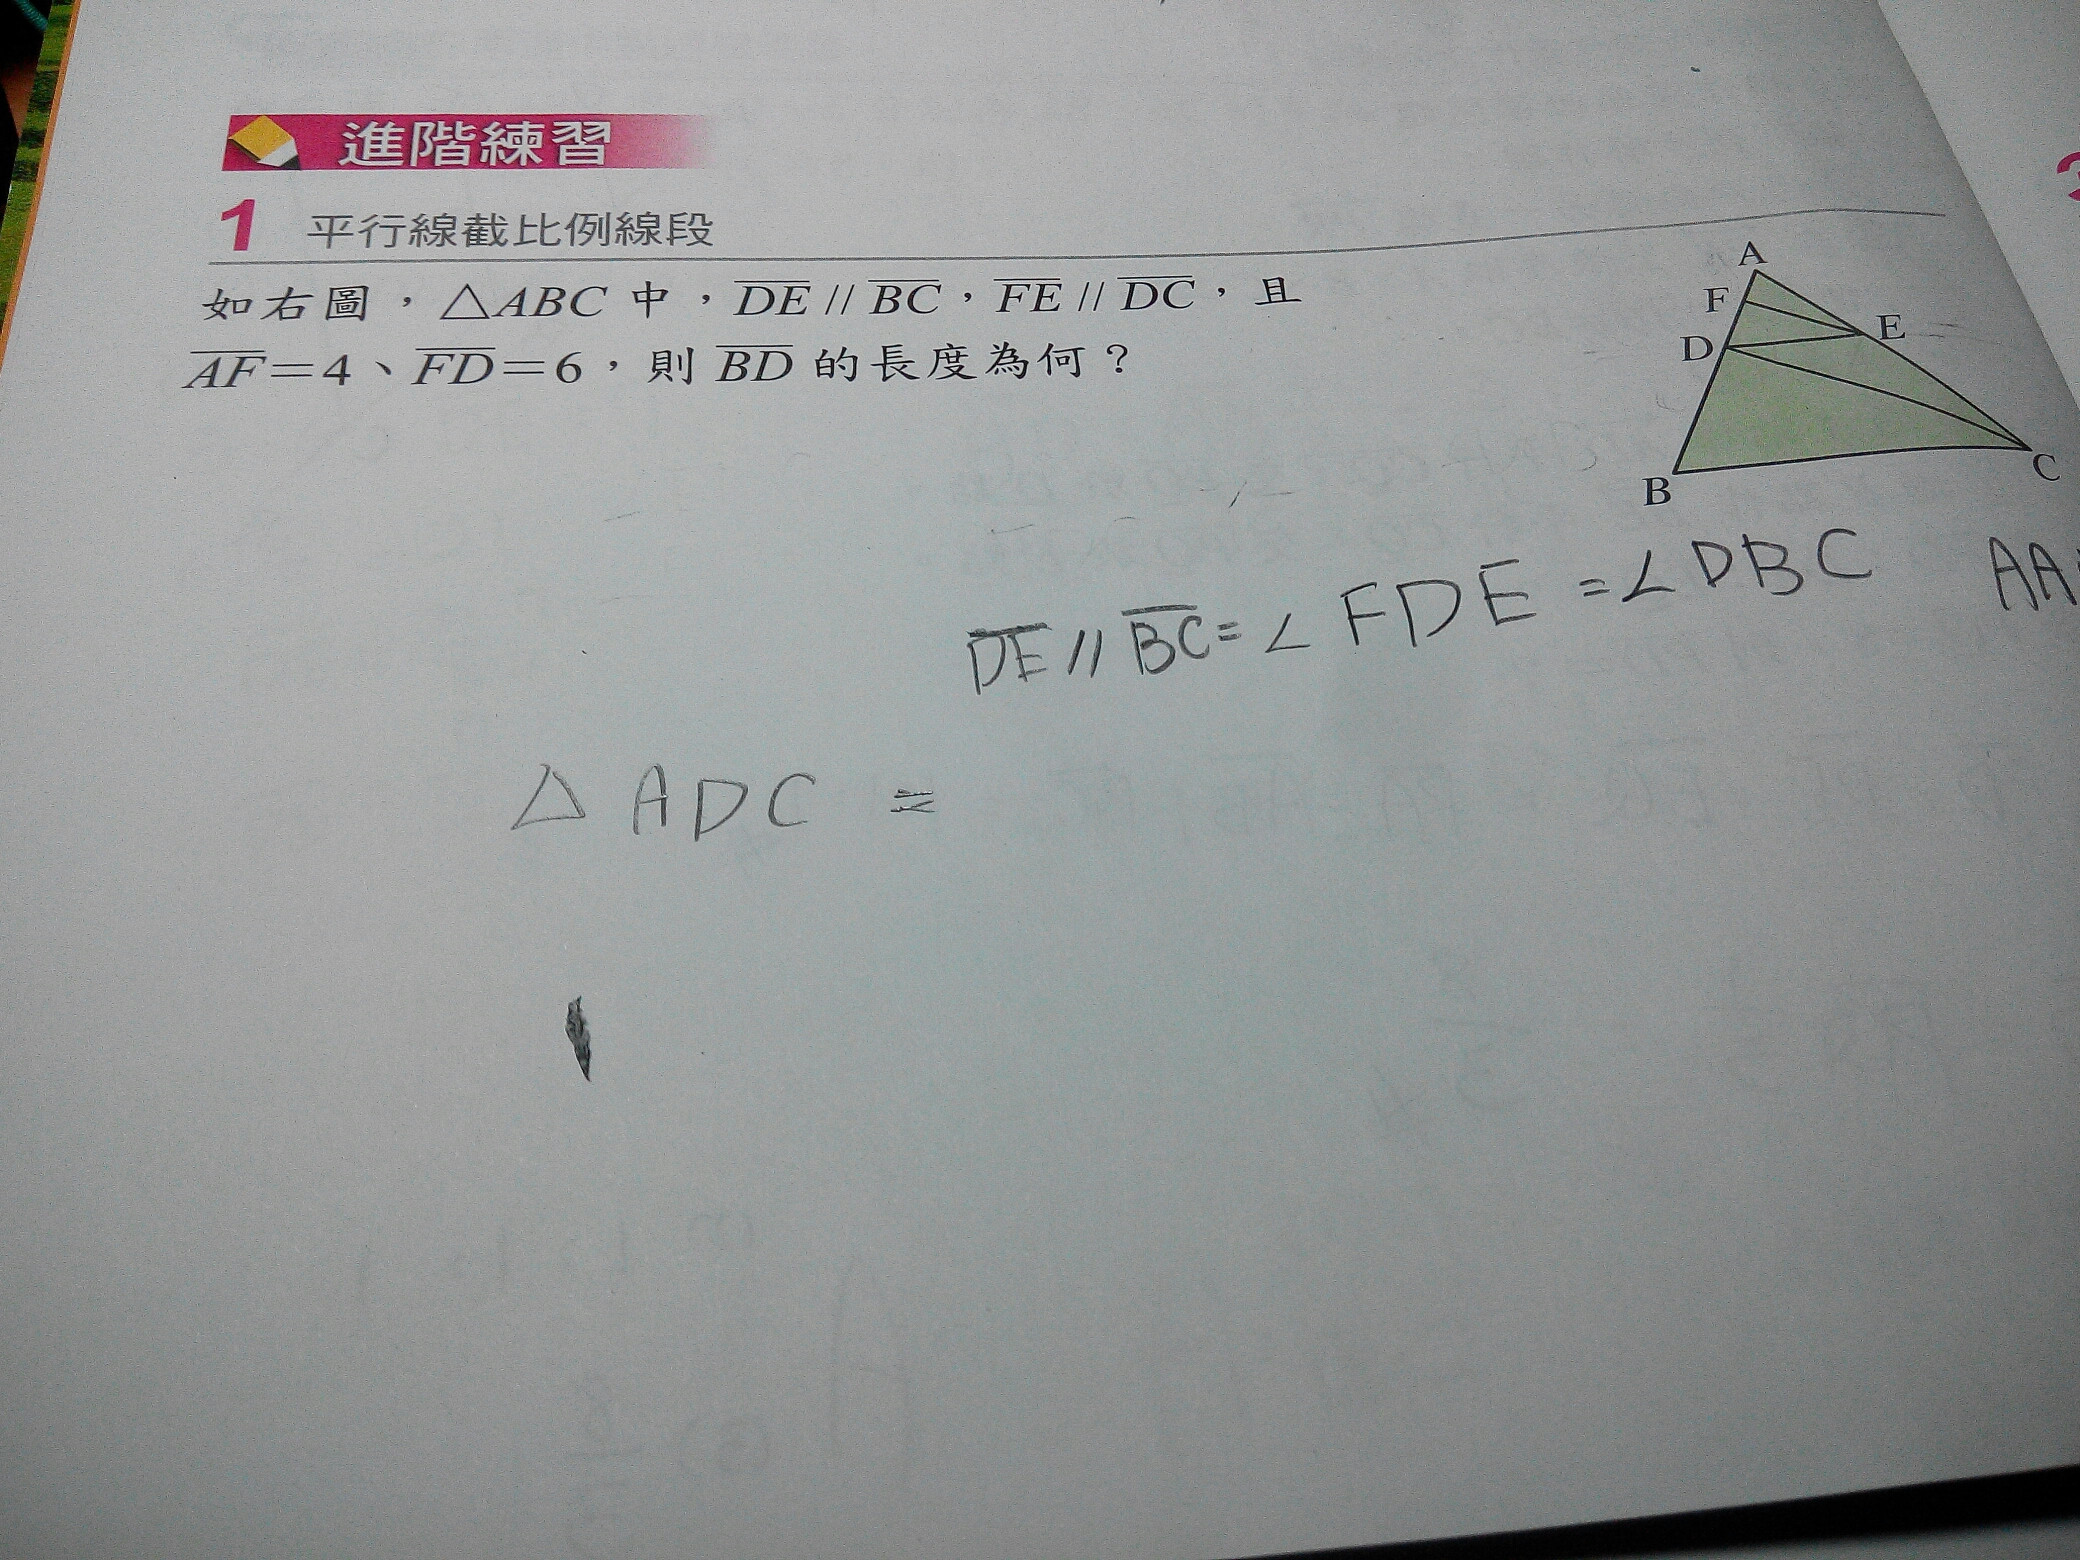 進階練習
1 平行線截比例線段
如右圖，△ABC 中，DE // BC，FE // DC，且
AF=4、FD=6，則 BD 的長度為何？
A
F
E
D
B
C
DE // BC = ∠FDE = ∠DBC AA
△ADC ≈